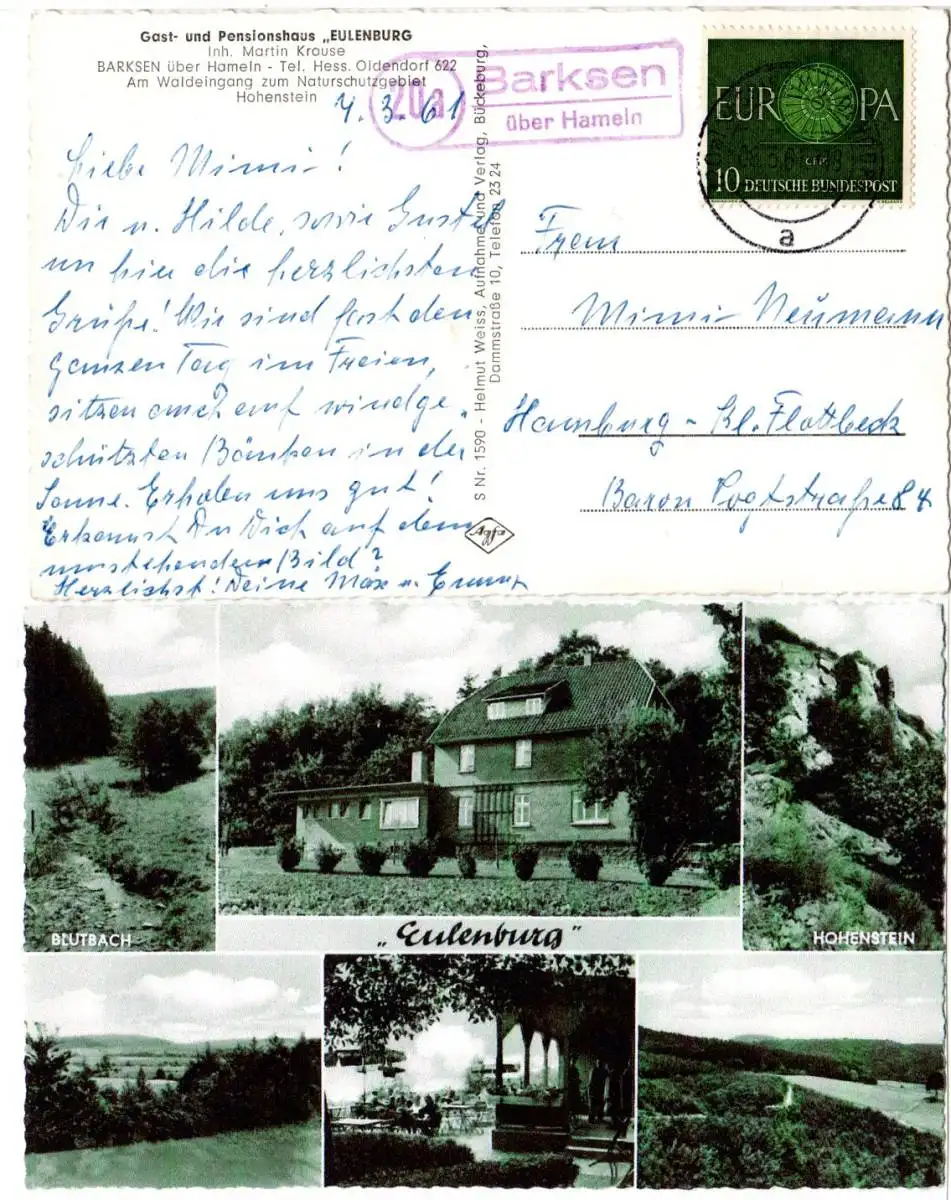 Gast- und Pensionshaus „EULENBURG
Inh. Martin Krause
BARKSEN über Hameln - Tel. Hess. Oldendorf 622
Am Waldeingang zum Naturschutzgebiet
Hohenstein
4.3.61
Liebe Mimi!
Dir u. Hilde, sowie Gustel
un hin die herzlichsten
Grüße! Wir sind fast den
ganzen Tag im Freien,
sitzen auch auf windge-
schützten Bänken in der
Sonne. Erholen uns gut!
Erkennst Du Dich auf dem
umstehenden Bild?
Herzlichst! Deine Max u.
20a
Barksen
über Hameln
S Nr. 1590 - Helmut Weiss, Aufnahme und Verlag, Bückeburg,
Dammstraße 10, Telefon 23 24
Agfa
EUROPA
CEPT
10 DEUTSCHE BUNDESPOST
a
Frau
Mimi Neumann
Hamburg - Kl. Flottbeck
Baron Vogtstraße 84
BLUTBACH
„Eulenburg"
HOHENSTEIN